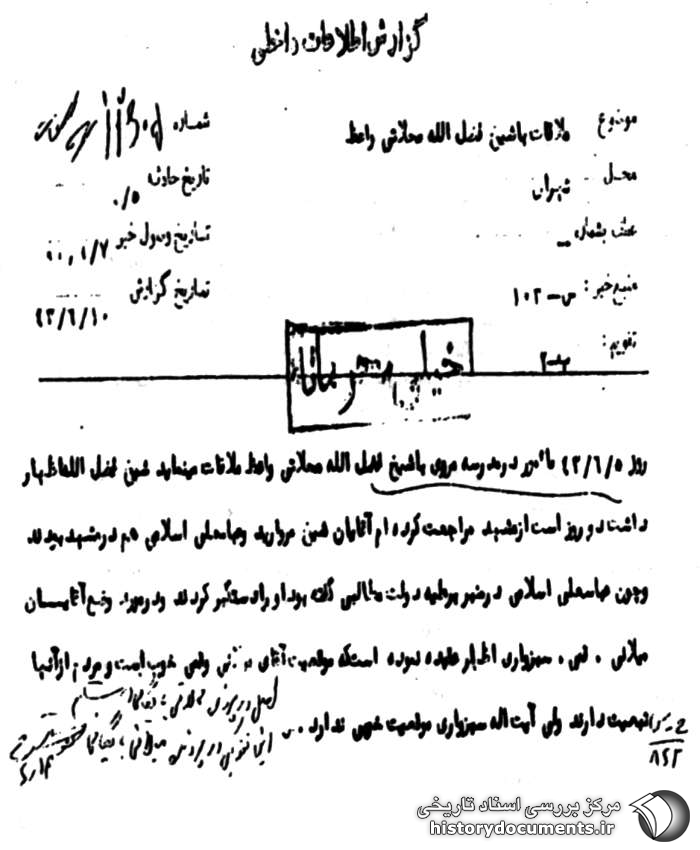 گزارش اطلاعات داخلی
موضوع ملاقات باشیخ فضل الله محلاتی واعظ
محل تهران
عطف بشماره
منبع خبر: س-۱۰۲
تقویم: ب-۲
شماره
تاریخ حادثه ۰/۵
تاریخ وصول خبر
تاریخ گزارش ۴۲/۶/۱۰
خیلی محرمانه
روز ۴۲/۶/۵ مامور درمدرسه مروی باشیخ فضل الله محلاتی واعظ ملاقات مینماید شیخ فضل الله اظهار
داشت دو روز است ازمشهد مراجعت کرده ام آقایان شیخ مروارید وعباسعلی اسلامی هم درمشهد بودند
وچون عباسعلی اسلامی درمنبر برعلیه دولت مطالبی گفته بود او را دستگیر کردند ودرمورد وضع آقایان
میلانی . قمی . سبزواری اظهار عقیده نموده است که موقعیت آقای میلانی وقمی خوب است و مردم ازآنها
تبعیت دارند ولی آیت اله سبزواری موقعیت خوبی ندارد .
اصل در پرونده محلاتی بایگانی است
این نسخه در پرونده میلانی بایگانی شود
۸۲۲
مرکز بررسی اسناد تاریخی
historydocuments.ir